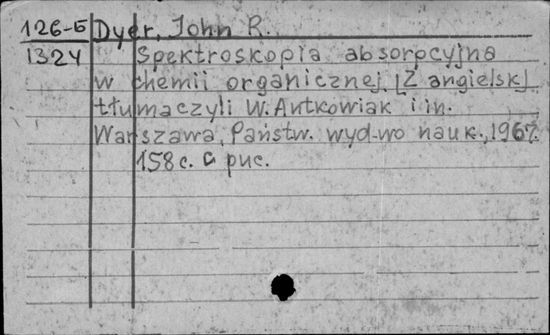 126-Б Dyer, John R.
1324 Spektroskopia absorpcyjna
w chemii organicznej. [Z angielsk]
tłumaczyli W. Antkowiak i in.
Warszawa, Państw. wyd-wo nauk., 1967.
158 с. с рис.